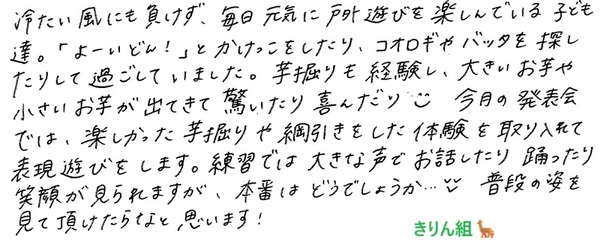 冷たい風にも負けず、毎日元気に戸外遊びを楽しんでいる子ども
達。「よーいどん!」とかけっこをしたり、コオロギやバッタを探し
たりして過ごしていました。芋掘りも経験し、大きいお芋や
小さいお芋が出てきて驚いたり喜んだり 今月の発表会
では、楽しかった芋掘りや綱引きをした体験を取り入れて
表現遊びをします。練習では大きな声でお話したり踊ったり
笑顔が見られますが、本番はどうでしょうか… 普段の姿を
見て頂けたらなと思います!
きりん組